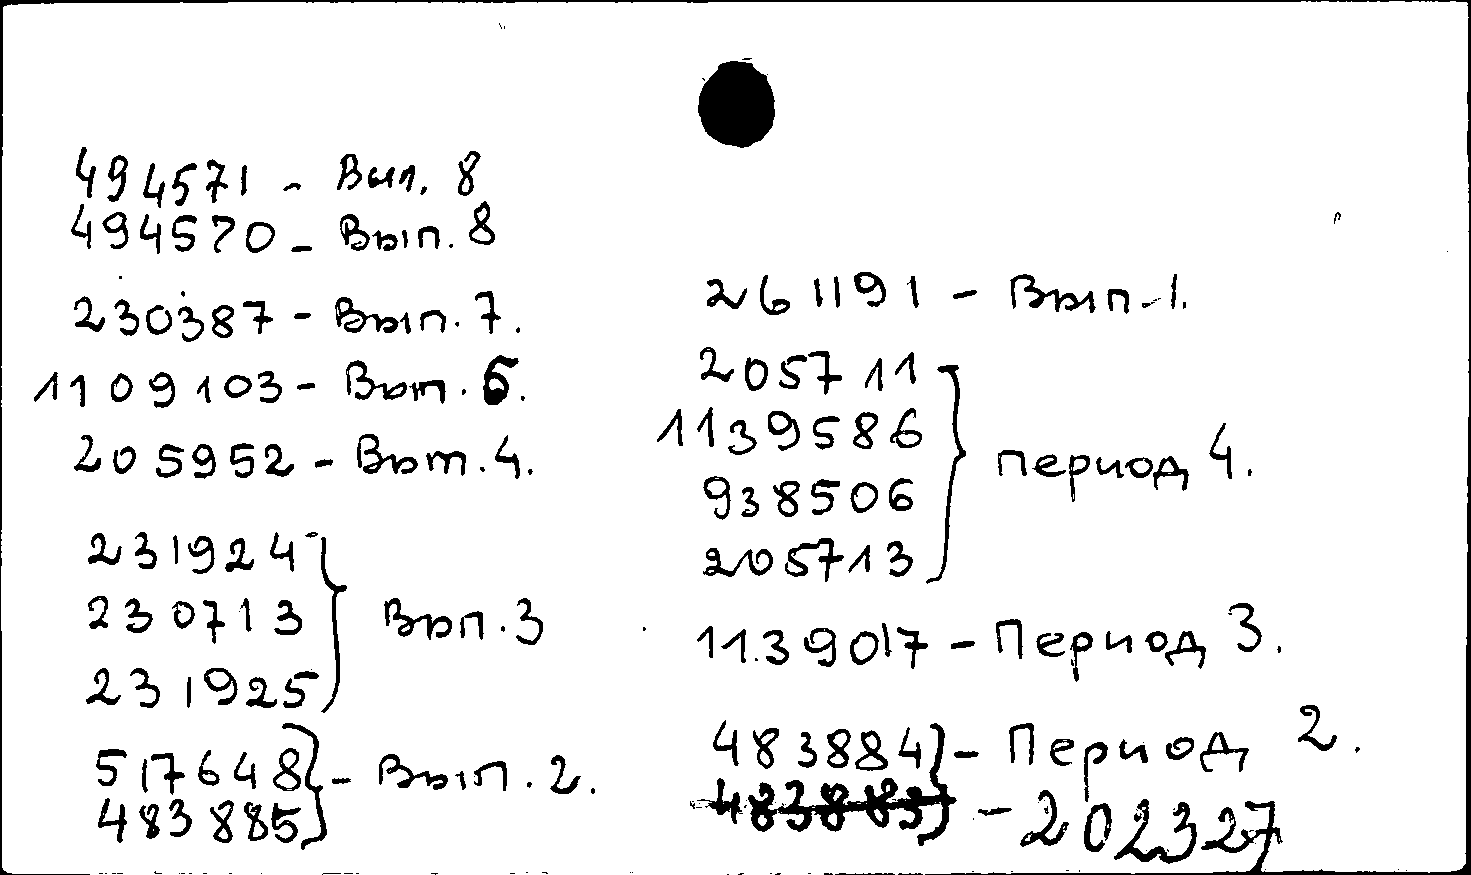 494571 - Вып. 8
494570 - Вып. 8
230387 - Вып. 7.
1109103 - Вып. 6.
205952 - Вып. 4.
231924
230713
231925
Вып. 3
517648
483885
- Вып. 2.
261191 - Вып. 1.
205711
1139586
938506
205713
период 4.
1139017 - Период 3.
483884 - Период 2.
483883 - 202327